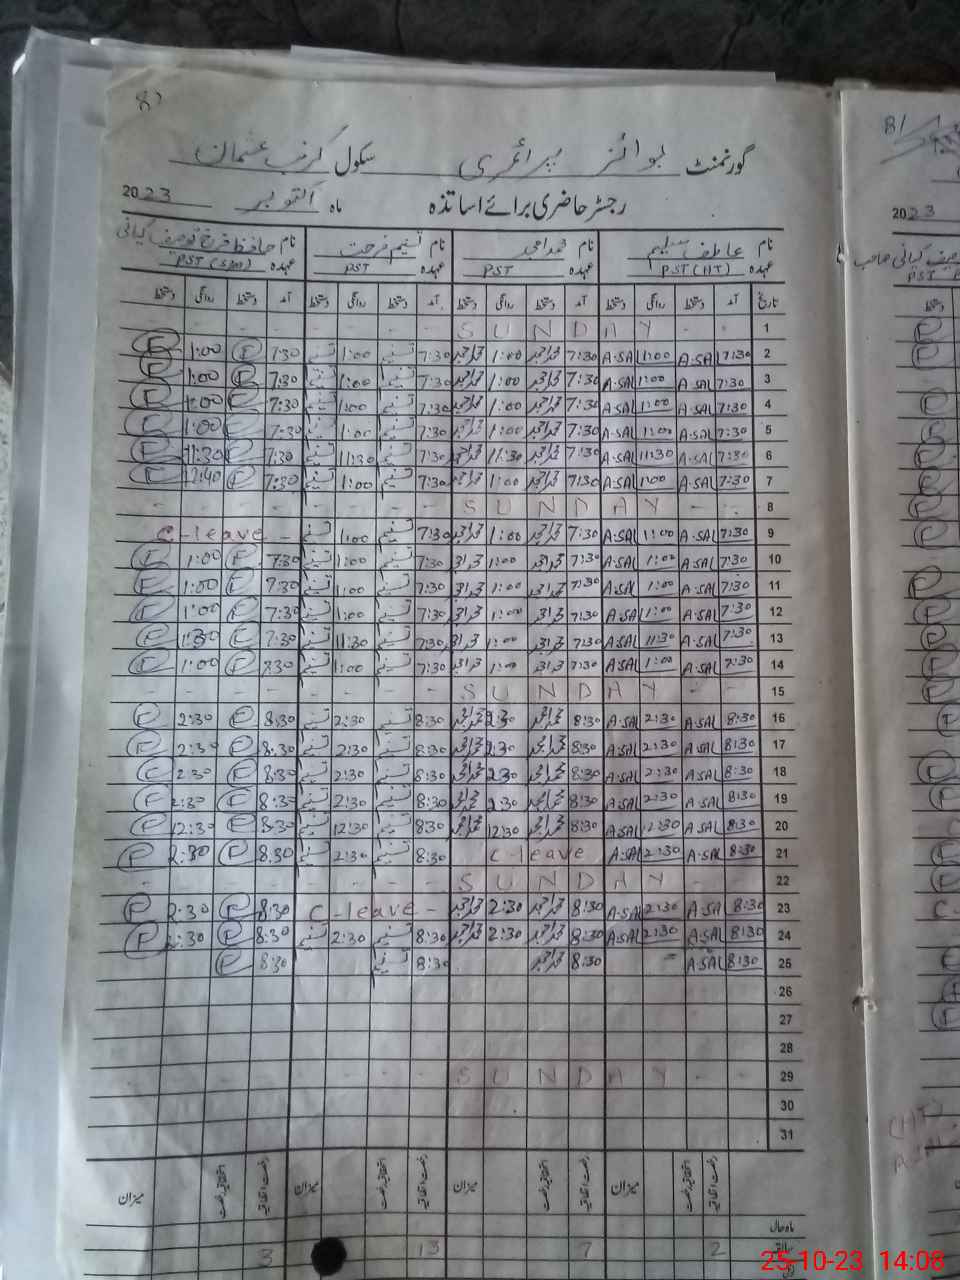 گورنمنٹ بوائز پرائمری سکول
رجسٹر حاضری برائے اساتذہ ماہ اکتوبر 2023
نام عاطف سلیم نام محمد امجد نام تسنیم فرحت نام حافظ فرخ توصیف کیانی
عہدہ PST (HT) عہدہ PST عہدہ PST عہدہ
تاریخ آمد دستخط روانگی دستخط آمد دستخط روانگی دستخط آمد دستخط روانگی دستخط آمد دستخط روانگی دستخط
1 SUNDAY
2 7:30 A.SAL 1:00 A.SAL 7:30 محمد امجد 1:00 محمد امجد 7:30 تسنیم 1:00 تسنیم 7:30 F 1:00 F
3 7:30 A.SAL 1:00 A.SAL 7:30 محمد امجد 1:00 محمد امجد 7:30 تسنیم 1:00 تسنیم 7:30 F 1:00 F
4 7:30 A.SAL 1:00 A.SAL 7:30 محمد امجد 1:00 محمد امجد 7:30 تسنیم 1:00 تسنیم 7:30 F 1:00 F
5 7:30 A.SAL 1:00 A.SAL 7:30 محمد امجد 1:00 محمد امجد 7:30 تسنیم 1:00 تسنیم 7:30 F 1:00 F
6 7:30 A.SAL 11:30 A.SAL 7:30 محمد امجد 11:30 محمد امجد 7:30 تسنیم 11:30 تسنیم 7:30 F 11:30 F
7 7:30 A.SAL 1:00 A.SAL 7:30 محمد امجد 1:00 محمد امجد 7:30 تسنیم 1:00 تسنیم 7:30 F 12:40 F
8 SUNDAY
9 7:30 A.SAL 1:00 A.SAL 7:30 محمد امجد 1:00 محمد امجد 7:30 تسنیم 1:00 تسنیم C-leave
10 7:30 A.SAL 1:00 A.SAL 7:30 محمد امجد 1:00 محمد امجد 7:30 تسنیم 1:00 تسنیم 7:30 F 1:00 F
11 7:30 A.SAL 1:00 A.SAL 7:30 محمد امجد 1:00 محمد امجد 7:30 تسنیم 1:00 تسنیم 7:30 F 1:00 F
12 7:30 A.SAL 1:00 A.SAL 7:30 محمد امجد 1:00 محمد امجد 7:30 تسنیم 1:00 تسنیم 7:30 F 1:00 F
13 7:30 A.SAL 11:30 A.SAL 7:30 محمد امجد 1:00 محمد امجد 7:30 تسنیم 11:30 تسنیم 7:30 F F
14 7:30 A.SAL 1:00 A.SAL 7:30 محمد امجد 1:00 محمد امجد 7:30 تسنیم 1:00 تسنیم F 1:00 F
15 SUNDAY
16 8:30 A.SAL 2:30 A.SAL 8:30 محمد امجد 2:30 محمد امجد 8:30 تسنیم 2:30 تسنیم 8:30 F 2:30 F
17 8:30 A.SAL 2:30 A.SAL 8:30 محمد امجد 2:30 محمد امجد 8:30 تسنیم 2:30 تسنیم 8:30 F 2:30 F
18 8:30 A.SAL 2:30 A.SAL 8:30 محمد امجد 2:30 محمد امجد 8:30 تسنیم 2:30 تسنیم 8:30 F 2:30 F
19 8:30 A.SAL 2:30 A.SAL 8:30 محمد امجد 2:30 محمد امجد 8:30 تسنیم 2:30 تسنیم 8:30 F 2:30 F
20 8:30 A.SAL 12:30 A.SAL 8:30 محمد امجد 12:30 محمد امجد 8:30 تسنیم 12:30 تسنیم 8:30 F 12:30 F
21 8:30 A.SAL 2:30 A.SAL C-leave 8:30 تسنیم 2:30 تسنیم 8:30 F 2:30 F
22 SUNDAY
23 8:30 A.SAL 2:30 A.SAL 8:30 محمد امجد 2:30 محمد امجد C-leave 8:30 F 2:30 F
24 8:30 A.SAL 2:30 A.SAL 8:30 محمد امجد 2:30 محمد امجد 8:30 تسنیم 2:30 تسنیم 8:30 F 2:30 F
25 8:30 A.SAL 8:30 محمد امجد 8:30 تسنیم 8:30 F
26
27
28
29 SUNDAY
30
31
رخصت اتفاقیہ میزان رخصت اتفاقیہ میزان رخصت اتفاقیہ میزان رخصت اتفاقیہ میزان
ماہ حال
سابقہ 2 7 13 3
81
2023
25-10-23 14:08